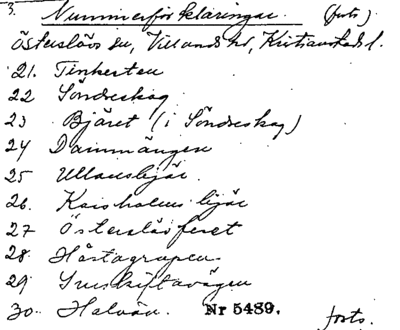 3. Nummerförklaringar (forts)
Österslövs sn, Villands hd, Kristianstads l.
21. Tinkerten
22 Söndreskog
23 Bjäret (i Söndreskog)
24 Dammängen
25 Ullausbjär.
26. Kaisholms bjär
27 Österslövferet
28. Håstagrapen
29
30. Halvön. Nr 5489. forts.